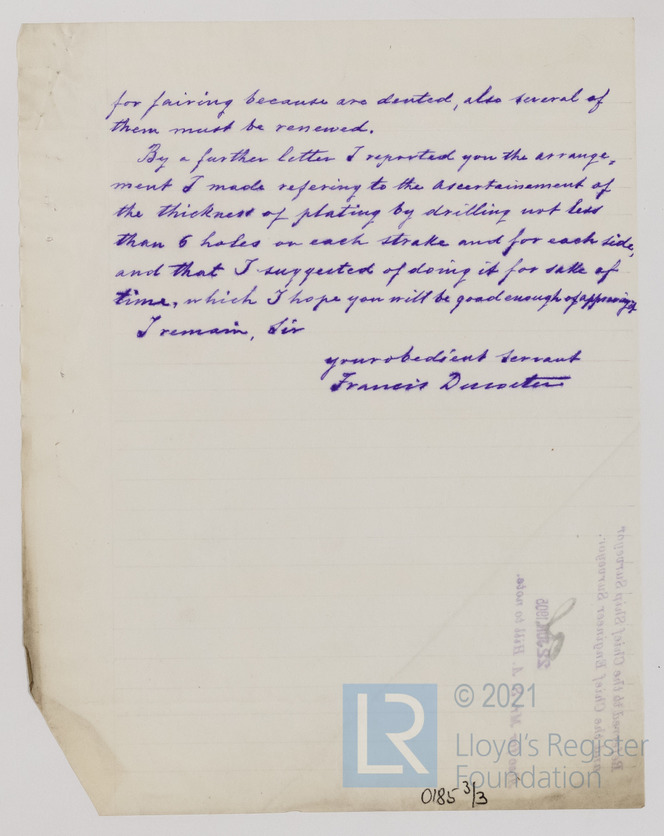 for fairing because are dented, also several of
them must be renewed.
By a further letter I reported you the arrange,
ment I made refering to the ascertainement of
the thickness of plating by drilling not less
than 6 holes on each strake and for each side,
and that I suggested of doing it for sake of
time, which I hope you will be good enough of approving
I remain, Sir
your obedient servant
Francis
© 2021
LR
Lloyd's Register
Foundation
0185 3/3
Hill to note.
22 JUN 1905
the Chief Engineer Surveyor.
to the Chief Ship Surveyor